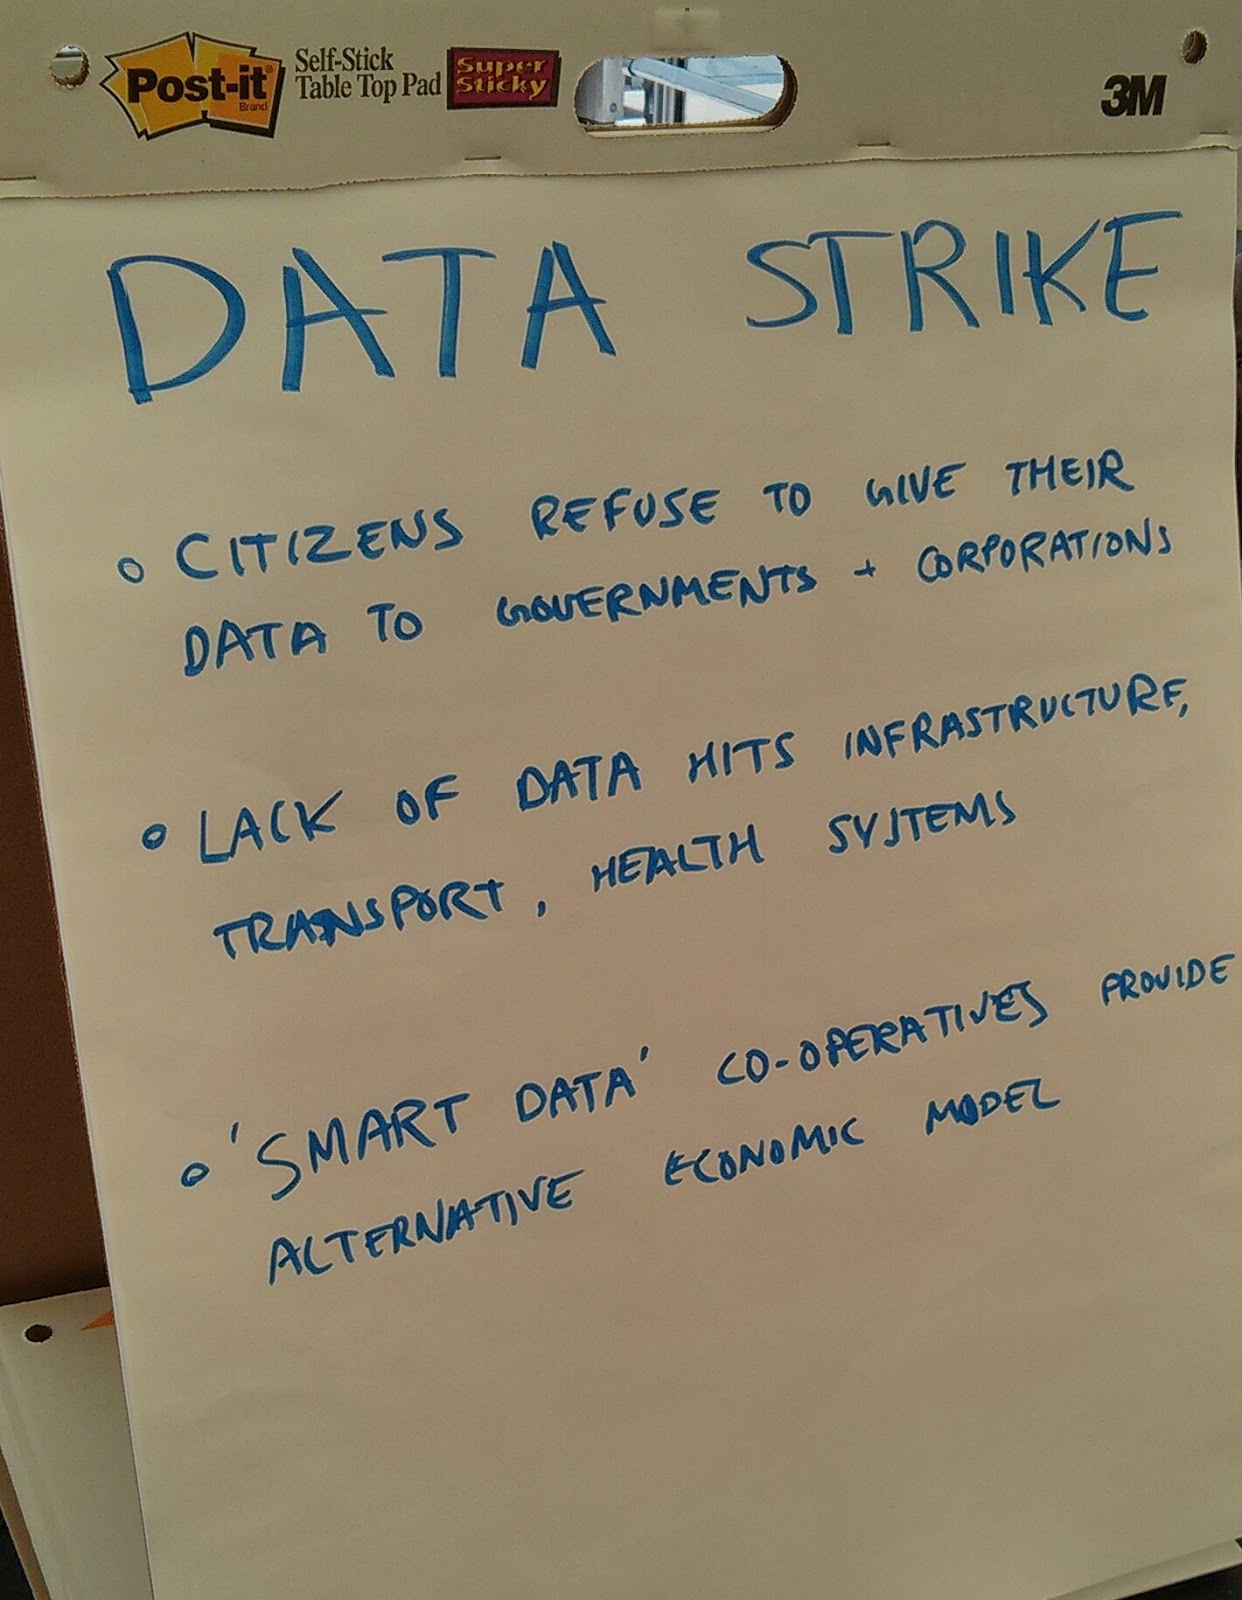 Post-it®
Brand
Self-Stick
Table Top Pad
Super
Sticky
3M
DATA STRIKE
CITIZENS REFUSE TO GIVE THEIR
DATA TO GOVERNMENTS + CORPORATIONS
LACK OF DATA HITS INFRASTRUCTURE,
TRANSPORT, HEALTH SYSTEMS
'SMART DATA' CO-OPERATIVES PROVIDE
ALTERNATIVE ECONOMIC MODEL